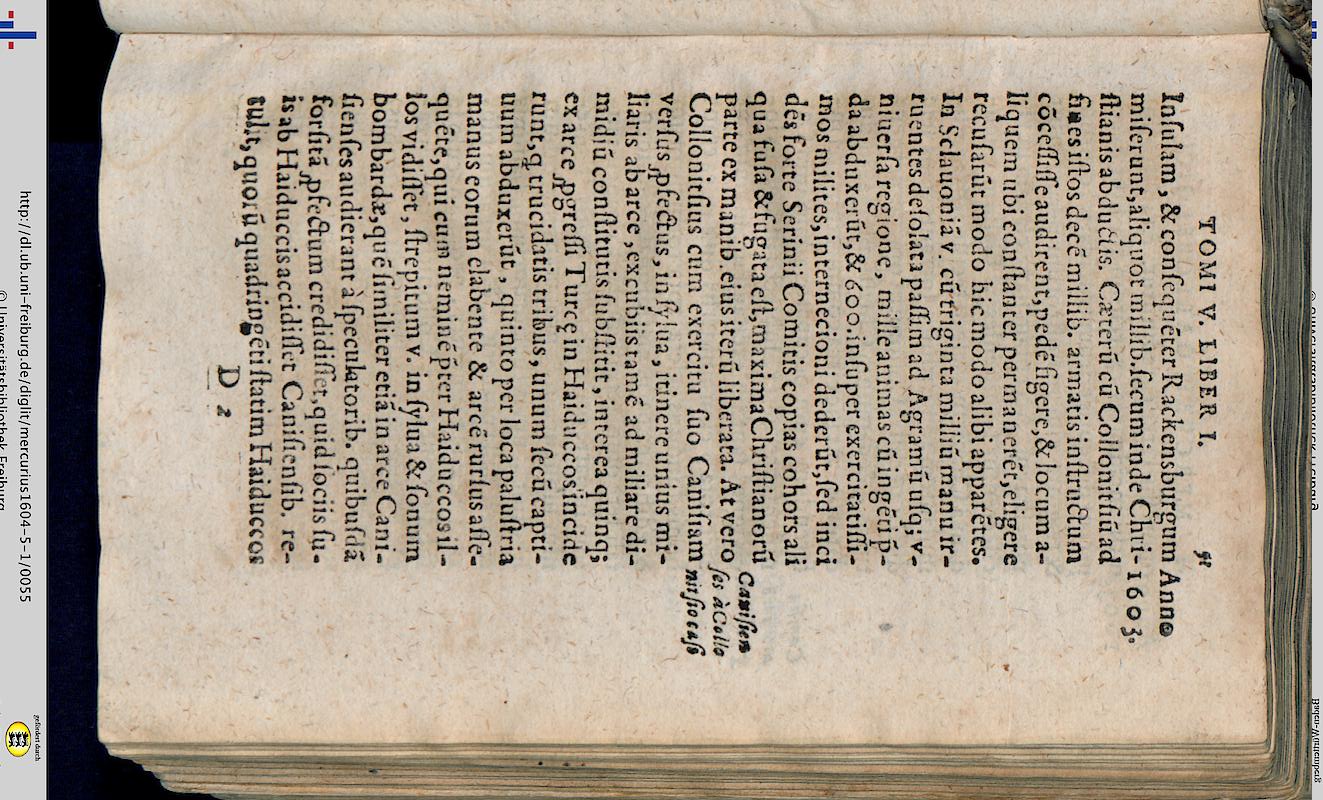 TOMI V. LIBER I. 51
Inſulam, & conſequēter Rackensburgum Anno
miſerunt, aliquot millib. ſecum inde Chri- 1603.
ſtianis abductis. Cæterū cū Collonitſiū ad
fines iſtos decē millib. armatis inſtructum
cōceſſiſſe audirent, pedē figere, & locum a-
liquem ubi conſtanter permanerēt, eligere
recuſarūt modo hic modo alibi apparētes.
In Sclauoniā v. cū triginta milliū manu ir-
ruentes deſolata paſſim ad Agramū uſq; v-
niuerſa regione, mille animas cū ingēti p̄-
da abduxerūt, & 600. inſuper exercitatiſſi-
mos milites, internecioni dederūt, ſed inci
dēs forte Serinii Comitis copias cohors ali
qua fuſa & fugata eſt, maxima Chriſtianorū
parte ex manib. eius iterū liberata. At vero
Collonitſius cum exercitu ſuo Caniſiam
Caniſien
ſes à Collo
nitſio cæſi
verſus ꝓfectus, in ſylua, itinere unius mi-
liaris ab arce, excubiis tamē ad miliare di-
midiū conſtitutis ſubſtitit, interea quinq;
ex arce ꝓgreſſi Turcę in Haiduccos incide
runt, q̨ trucidatis tribus, unum ſecū capti-
uum abduxerūt, quinto per loca paluſtria
manus eorum elabente & arcē rurſus aſſe-
quēte, qui cum neminē p̄ter Haiduccos il-
los vidiſſet, ſtrepitum v. in ſylua & ſonum
bombardæ, quē ſimiliter etiā in arce Cani-
ſienſes audierant à ſpeculatorib. quibuſdā
forſitā ꝓfectum credidiſſet, quid ſociis ſu-
is ab Haiduccis accidiſſet Caniſienſib. re-
tulit, quorū quadringēti ſtatim Haiduccos
D 2
http://dl.ub.uni-freiburg.de/diglit/mercurius1604-5-1/0055
© Universitätsbibliothek Freiburg
gefördert durch